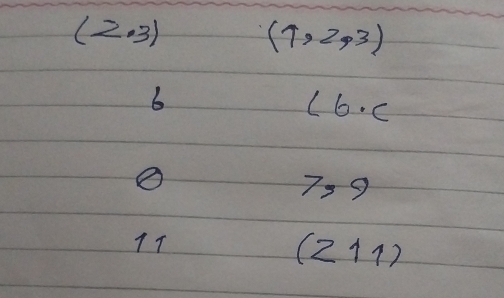 (2.3) (1,2,3)
6 ( 6.c
0 7,9
11 (2 1 1)